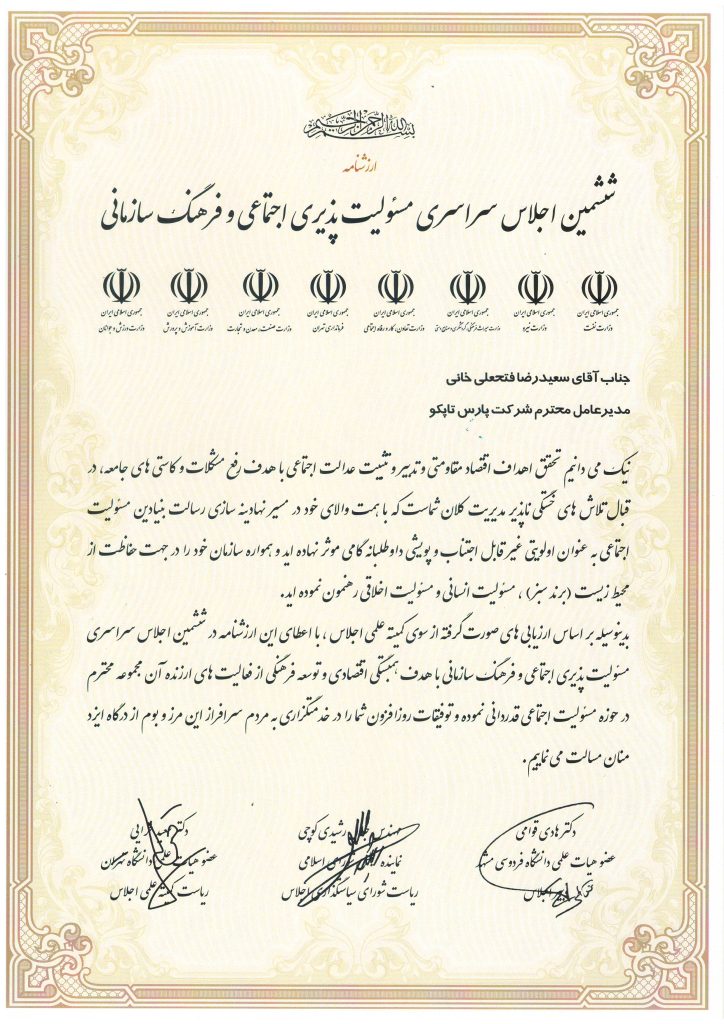 بسم الله الرحمن الرحیم
ارزشنامه
ششمین اجلاس سراسری مسئولیت پذیری اجتماعی و فرهنگ سازمانی
جمهوری اسلامی ایران جمهوری اسلامی ایران جمهوری اسلامی ایران جمهوری اسلامی ایران جمهوری اسلامی ایران جمهوری اسلامی ایران جمهوری اسلامی ایران جمهوری اسلامی ایران
وزارت نفت وزارت نیرو وزارت میراث فرهنگی، گردشگری و صنایع دستی وزارت تعاون، کار و رفاه اجتماعی فرمانداری تهران وزارت صنعت، معدن و تجارت وزارت آموزش و پرورش وزارت ورزش و جوانان
جناب آقای سعیدرضا فتحعلی خانی
مدیرعامل محترم شرکت پارس تاپکو
نیک می دانیم تحقق اهداف اقتصاد مقاومتی و تدبیر و تثبیت عدالت اجتماعی با هدف رفع مشکلات و کاستی های جامعه، در
قبال تلاش های خستگی ناپذیر مدیریت کلان شماست که با همت والای خود در مسیر نهادینه سازی رسالت بنیادین مسئولیت
اجتماعی به عنوان اولویتی غیر قابل اجتناب و پویشی داوطلبانه گامی موثر نهاده اید و همواره سازمان خود را در جهت حفاظت از
محیط زیست (برند سبز) ، مسئولیت انسانی و مسئولیت اخلاقی رهنمون نموده اید.
بدینوسیله بر اساس ارزیابی های صورت گرفته از سوی کمیته علمی اجلاس ، با اعطای این ارزشنامه در ششمین اجلاس سراسری
مسئولیت پذیری اجتماعی و فرهنگ سازمانی با هدف همبستگی اقتصادی و توسعه فرهنگی از فعالیت های ارزنده آن مجموعه محترم
در حوزه مسئولیت اجتماعی قدردانی نموده و توفیقات روزافزون شما را در خدمتگزاری به مردم سرافراز این مرز و بوم از درگاه ایزد
منان مسالت می نماییم.
دکتر هادی قوامی مهندس رشیدی کوچی دکتر
عضو هیات علمی دانشگاه فردوسی مشهد نماینده اسلامی عضو هیات علمی دانشگاه تهران
اجلاس ریاست شورای سیاستگذاری اجلاس ریاست کمیته علمی اجلاس